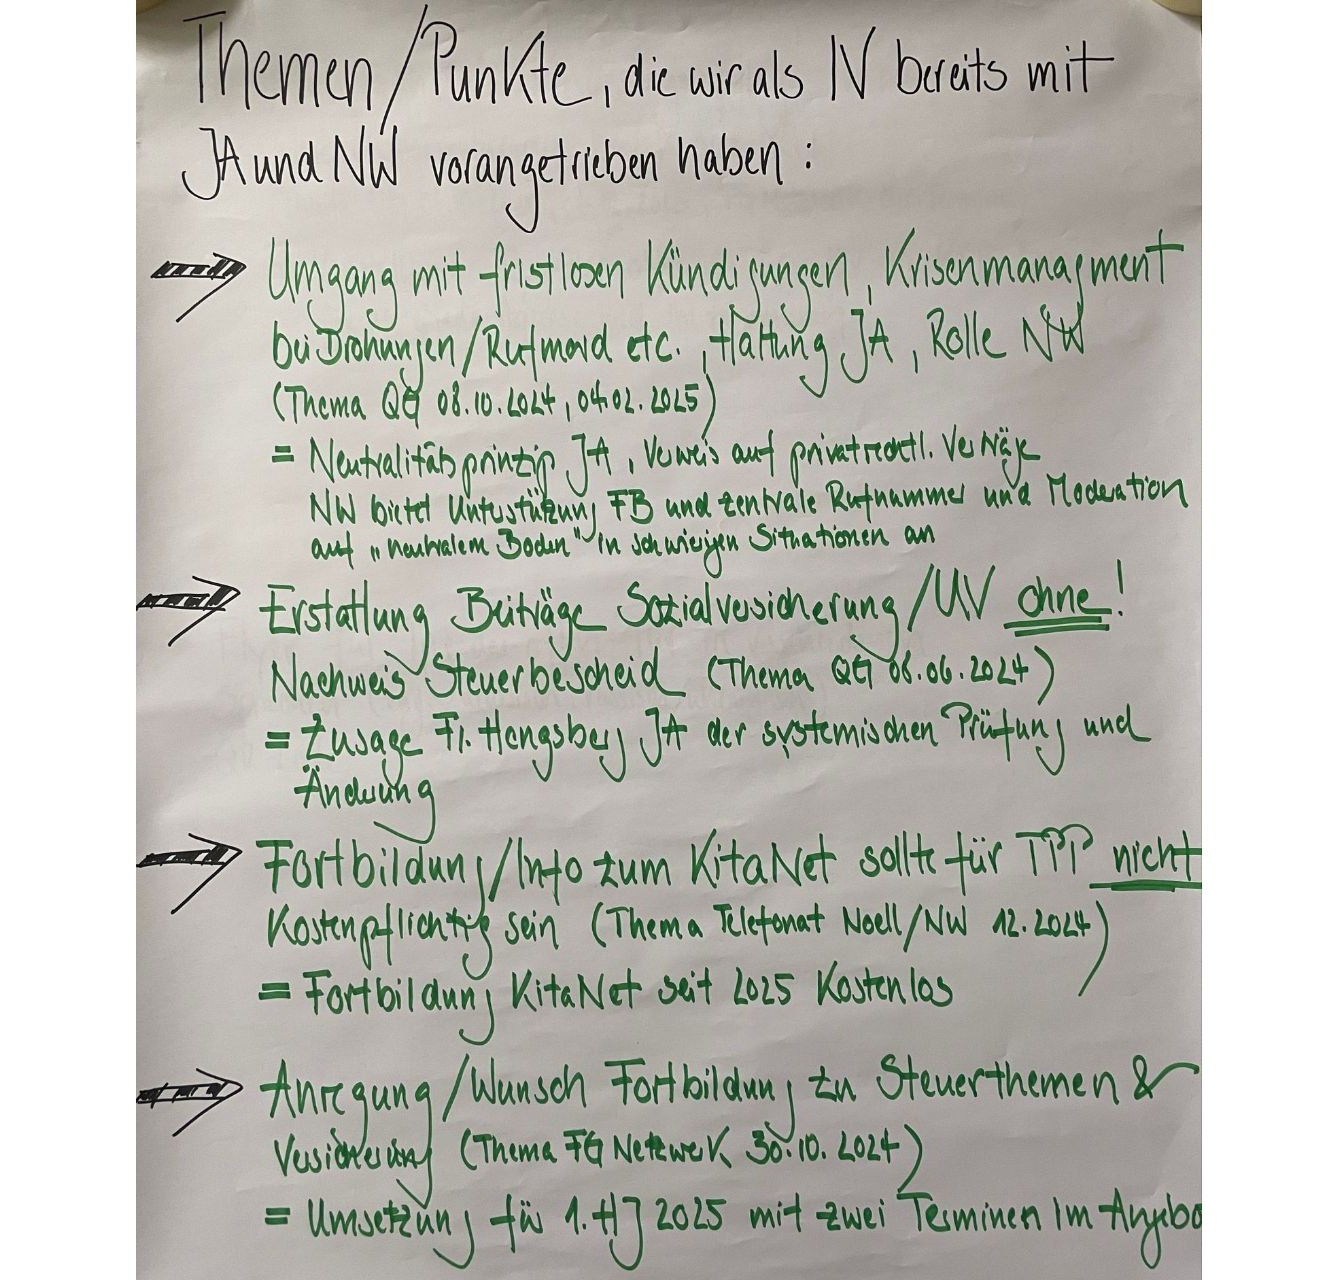 Themen/Punkte, die wir als IV bereits mit
JA und NW vorangetrieben haben:
Umgang mit fristlosen Kündigungen, Krisenmanagment
bei Drohungen/Rufmord etc., Haltung JA, Rolle NW
(Thema QG 08.10.2024, 04.02.2025)
= Neutralitätsprinzip JA, Verweis auf privatrechtl. Verträge
NW bietet Unterstützung FB und zentrale Rufnummer und Moderation
auf "neutralem Boden" in schwierigen Situationen an
Erstattung Beiträge Sozialversicherung/UV ohne!
Nachweis Steuerbescheid (Thema QG 06.06.2024)
= Zusage Fr. Hengsberg JA der systemischen Prüfung und
Änderung
Fortbildung/Info zum KitaNet sollte für TPP nicht
Kostenpflichtig sein (Thema Telefonat Noell/NW 12.2024)
= Fortbildung KitaNet seit 2025 Kostenlos
Anregung/Wunsch Fortbildung zu Steuerthemen &
Versicherung (Thema FG Netzwerk 30.10.2024)
= Umsetzung für 1. HJ 2025 mit zwei Terminen im Angebo